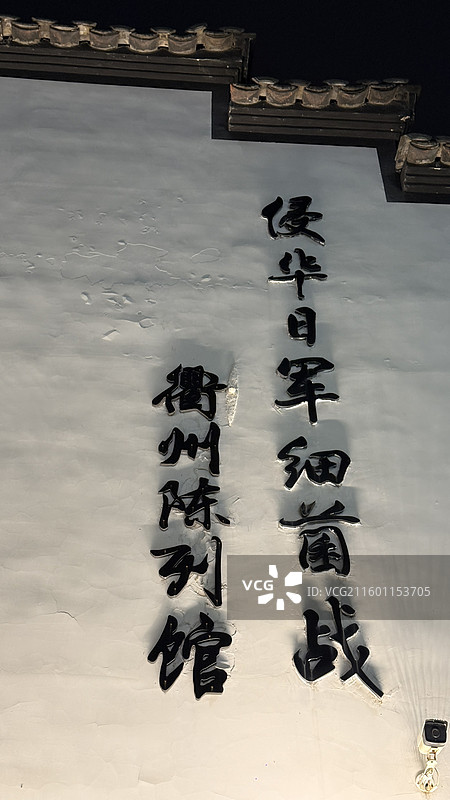 侵华日军细菌战
衢州陈列馆
VCG
ID:VCG211601153705